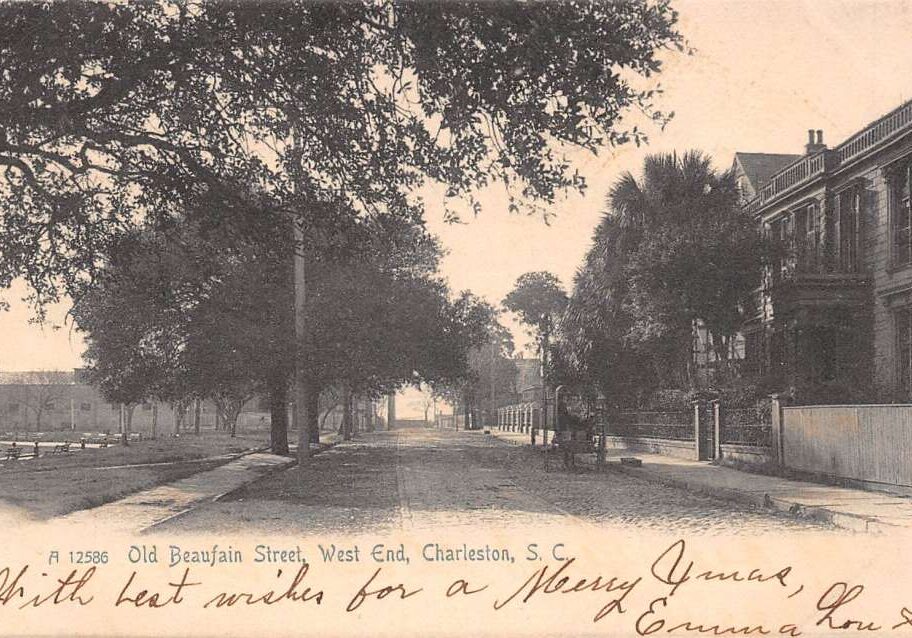 A 12586 Old Beaufain Street, West End, Charleston, S. C.
With best wishes for a Merry Xmas,
Emma Lou &